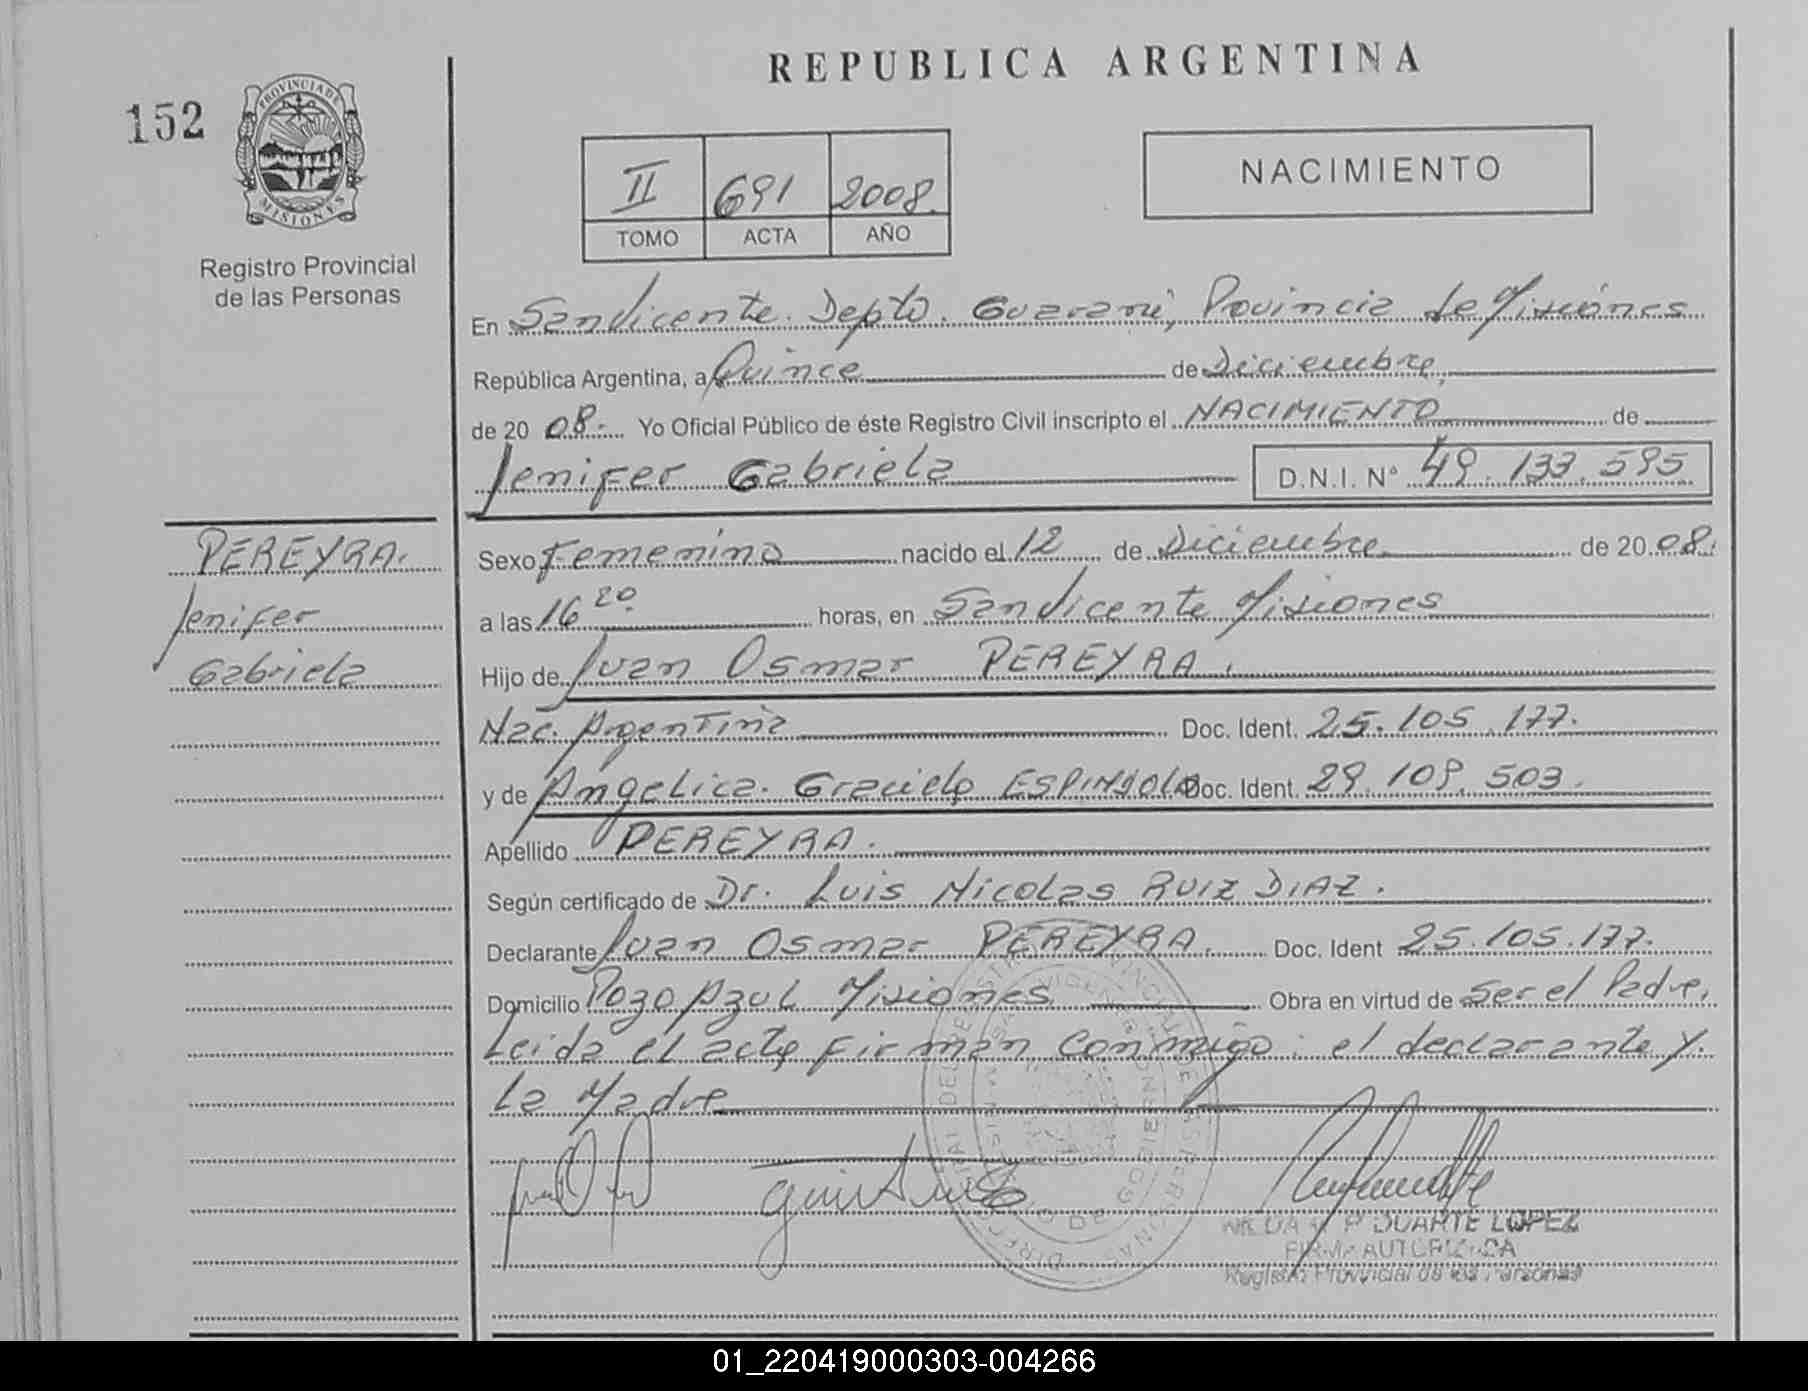 REPUBLICA ARGENTINA
152
PROVINCIA DE
MISIONES
Registro Provincial
de las Personas
II 691 2008.
TOMO ACTA AÑO
NACIMIENTO
En Sanvicente. Depto. Guarani, Provincia de Misiones
República Argentina, a Quince de Diciembre,
de 20 08. Yo Oficial Público de éste Registro Civil inscripto el NACIMIENTO de
Jenifer Gabriela D.N.I. N° 49.133.595
PEREYRA.
Jenifer
Gabriela
Sexo Femenino nacido el 12 de Diciembre de 20 08.
a las 16 20 horas, en Sanvicente Misiones
Hijo de Juan Osmar PEREYRA.
Nac. Argentina Doc. Ident. 25.105.177.
y de Angelica. Graciela ESPINDOLA Doc. Ident. 29.109.503.
Apellido PEREYRA.
Según certificado de Dr. Luis Nicolas RUIZ DIAZ.
Declarante Juan Osmar PEREYRA. Doc. Ident 25.105.177.
Domicilio Pozo Azul Misiones Obra en virtud de Ser el Padre.
Leida el acta Firman Conmigo: el declarante y
La Madre
DUARTE LOPEZ
FIRMA AUTORIZADA
Registro Provincial de las Personas
01_220419000303-004266